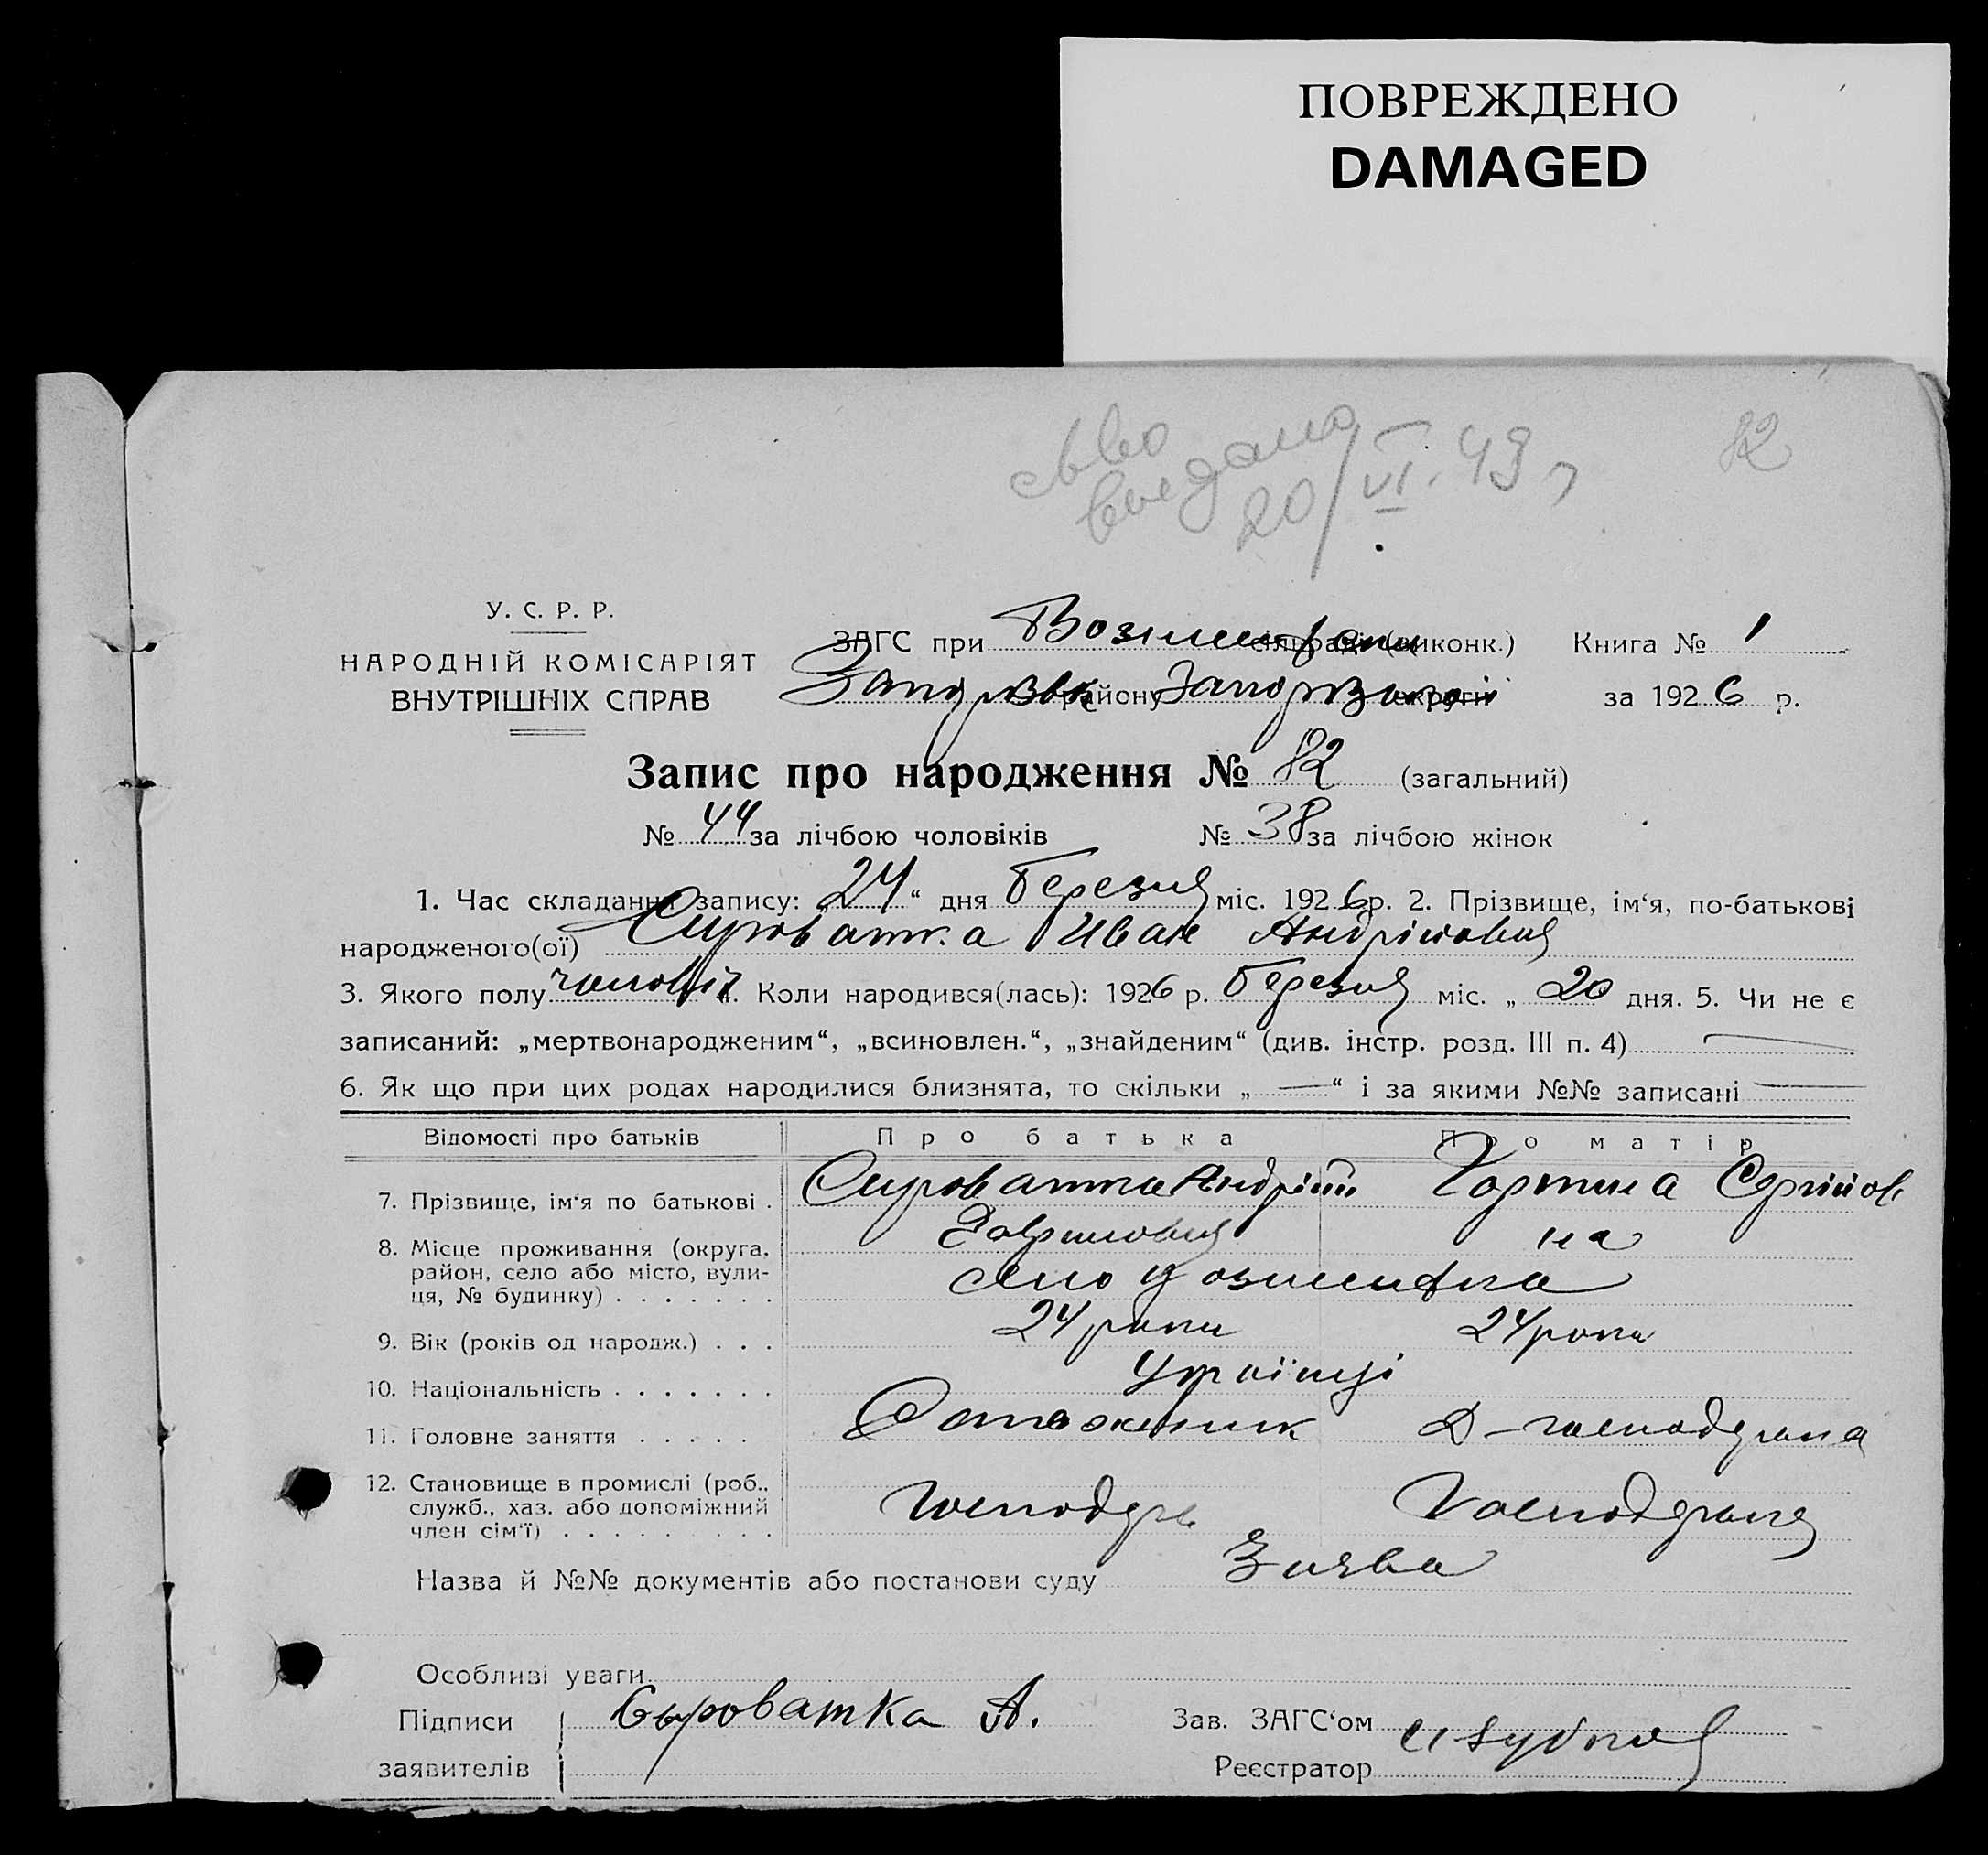 ПОВРЕЖДЕНО
DAMAGED
82
20/VI.43 г
У. С. Р. Р.
НАРОДНІЙ КОМІСАРІЯТ
ВНУТРІШНІХ СПРАВ
ЗАГС при сільраді (виконк.) Книга № 1
району округи за 1926 р.
Запис про народження № 82 (загальний)
№ 44 за лічбою чоловіків № 38 за лічбою жінок
1. Час складання запису: „24“ дня березня міс. 1926 р. 2. Прізвище, ім‘я, по-батькові
народженого(ої) Сироватка Иван Андрійович
3. Якого полу чоловіч 4. Коли народився(лась): 1926 р. березня міс. „ 20 дня. 5. Чи не є
записаний: „мертвонародженим“, „всиновлен.“, „знайденим“ (див. інстр. розд. III п. 4) —
6. Як що при цих родах народилися близнята, то скільки „ — “ і за якими №№ записані —
Відомості про батьків Про батька Про матір
7. Прізвище, ім‘я по батькові . Сироватка Андрій Горпина Сергійов
Гаврилович на
8. Місце проживання (округа, район, село або місто, вули-
ця, № будинку) . . . . . . . село
9. Вік (років од народж.) . . . 24 роки 24 роки
10. Національність . . . . . . . Українці
11. Головне заняття . . . . . Д-господарка
12. Становище в промислі (роб.,
служб., хаз. або допоміжний
член сім‘ї) . . . . . . . . . господар
Назва й №№ документів або постанови суду Заява
Особливі уваги
Підписи Сыроватка А. Зав. ЗАГС‘ом
заявителів Реєстратор